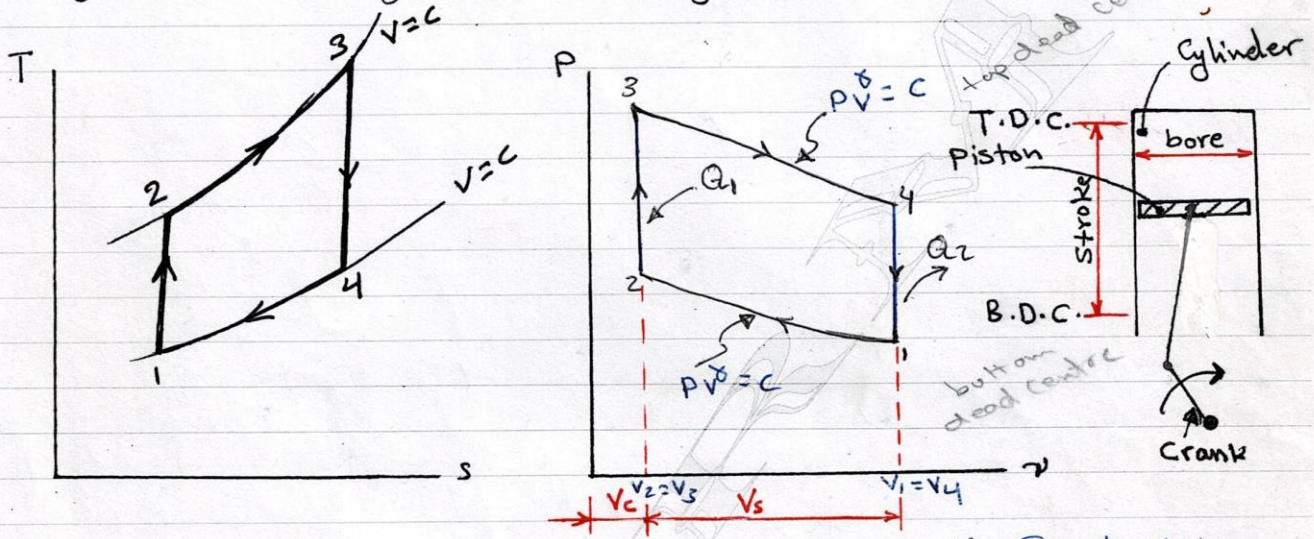 T
3
V=C
2
4
V=C
1
S
P
3
PV^γ = C
Q1
4
2
Q2
1
PV^γ = C
V2=V3
V1=V4
v
Vc
Vs
top dead ce
Cylinder
T.D.C.
bore
Piston
Stroke
B.D.C.
bottom
dead centre
Crank